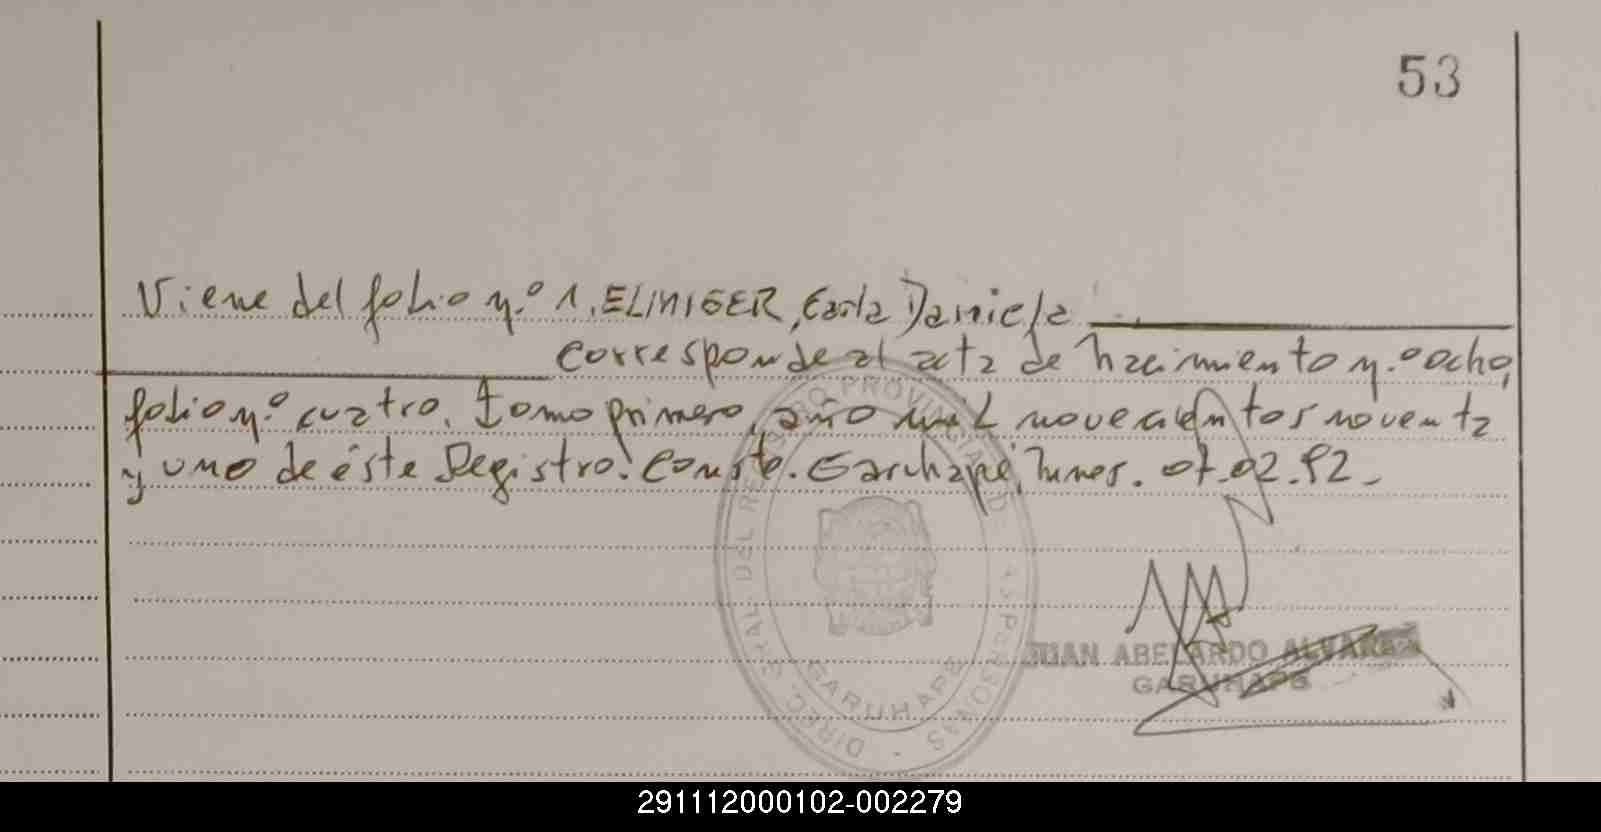 53
Viene del folio n.º 1. ELINIGER, Carla Daniela
corresponde al acta de nacimiento n.º ocho,
folio n.º cuatro. Tomo primero, año mil novecientos noventa
y uno de éste Registro. Conste. Garuhapé, Mnes. 07.02.92.-
DIREC. GRAL. DEL REGISTRO PROVINCIAL DE LAS PERSONAS
GARUHAPE
JUAN ABELARDO ALVAREZ
GARUHAPE
291112000102-002279